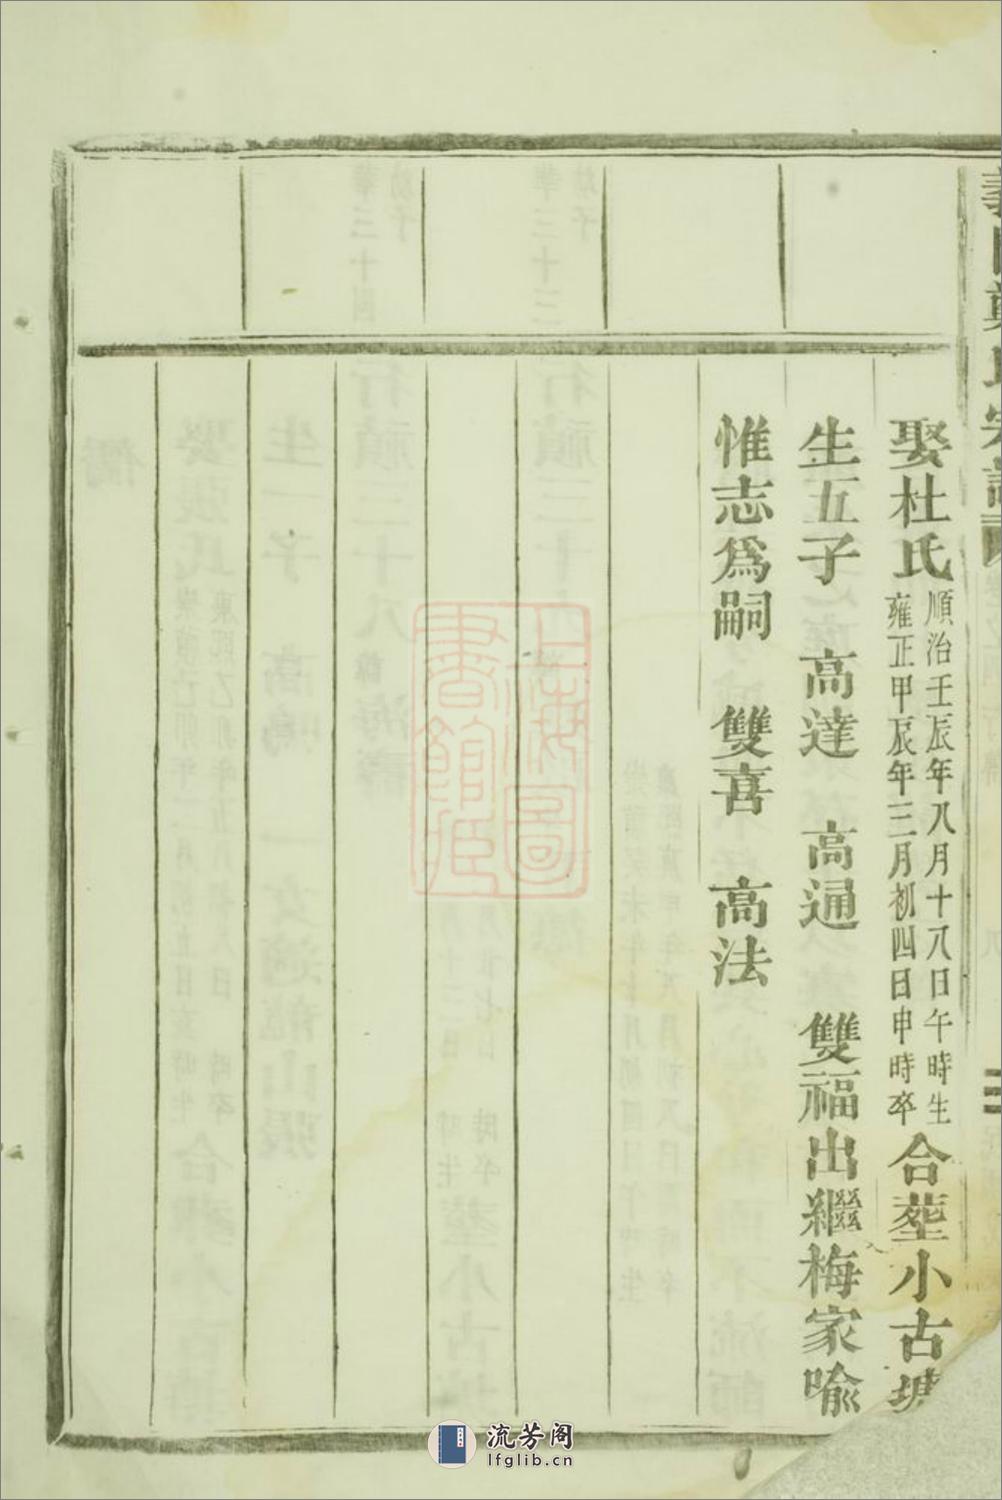 娶杜氏順治壬辰年八月十八日午時生雍正甲辰年三月初四日申時卒合塟小古塘
生五子 高達 高通 雙福出繼梅家喻
惟志爲嗣 雙喜 高法
上海圖書館藏
流芳阁
lfglib.cn